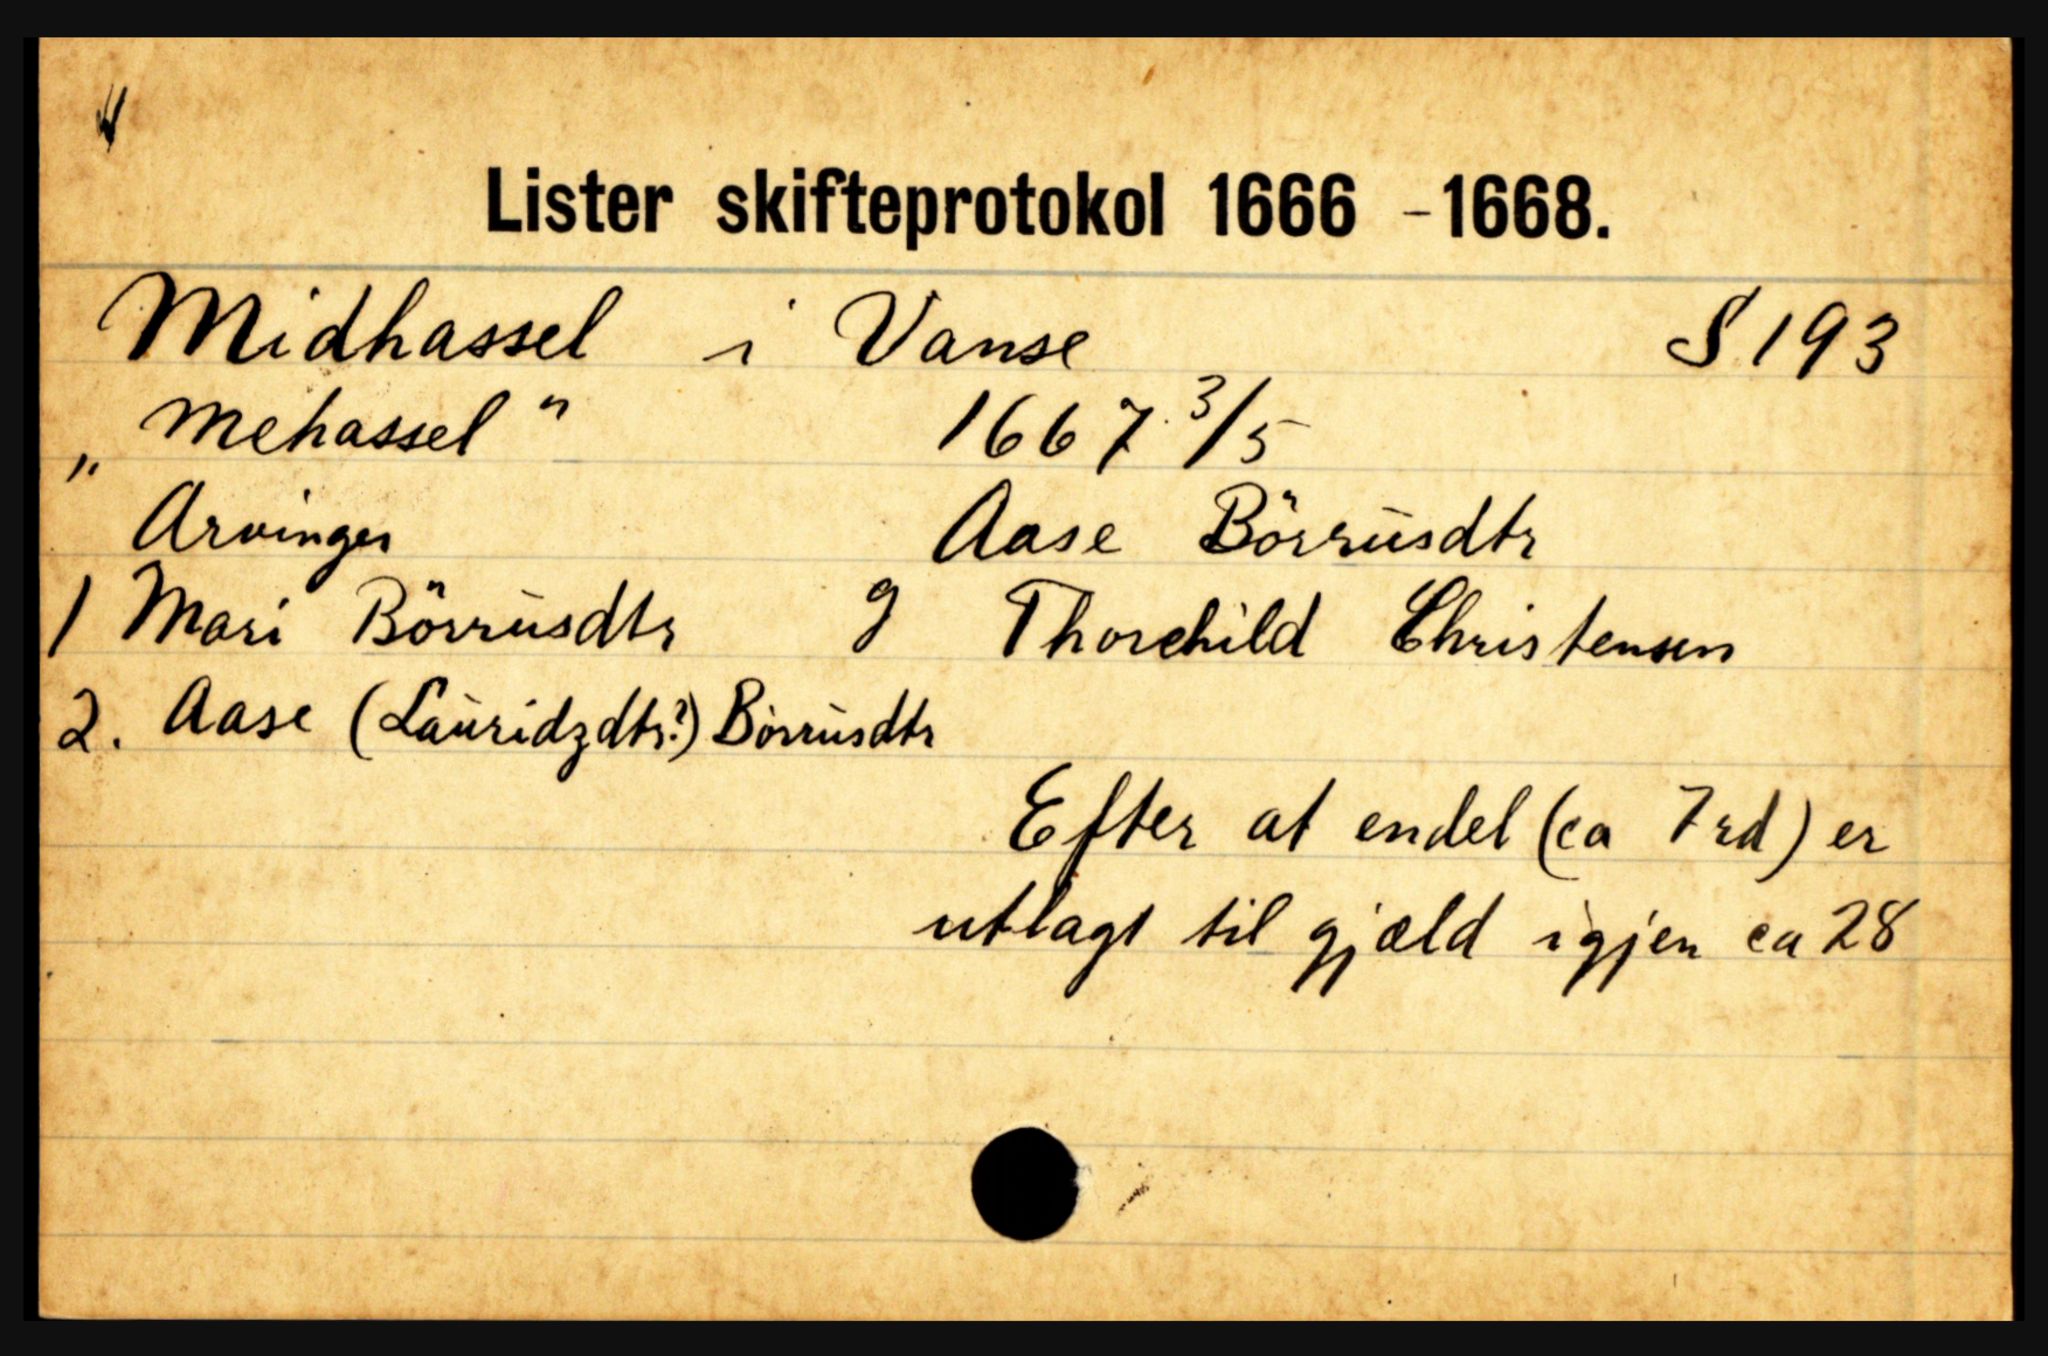 Lister skifteprotokol 1666 - 1668.
Midhassel i Vanse S 193
„Mehassel" 1667 3/5
Arvinger Aase Börrusdtr
1 Mari Börrusdtr g Thorchild Christensen
2. Aase (Lauridzdtr?) Börrusdtr
Efter at endel (ca 7 rd) er
utlagt til gjæld igjen ca 28